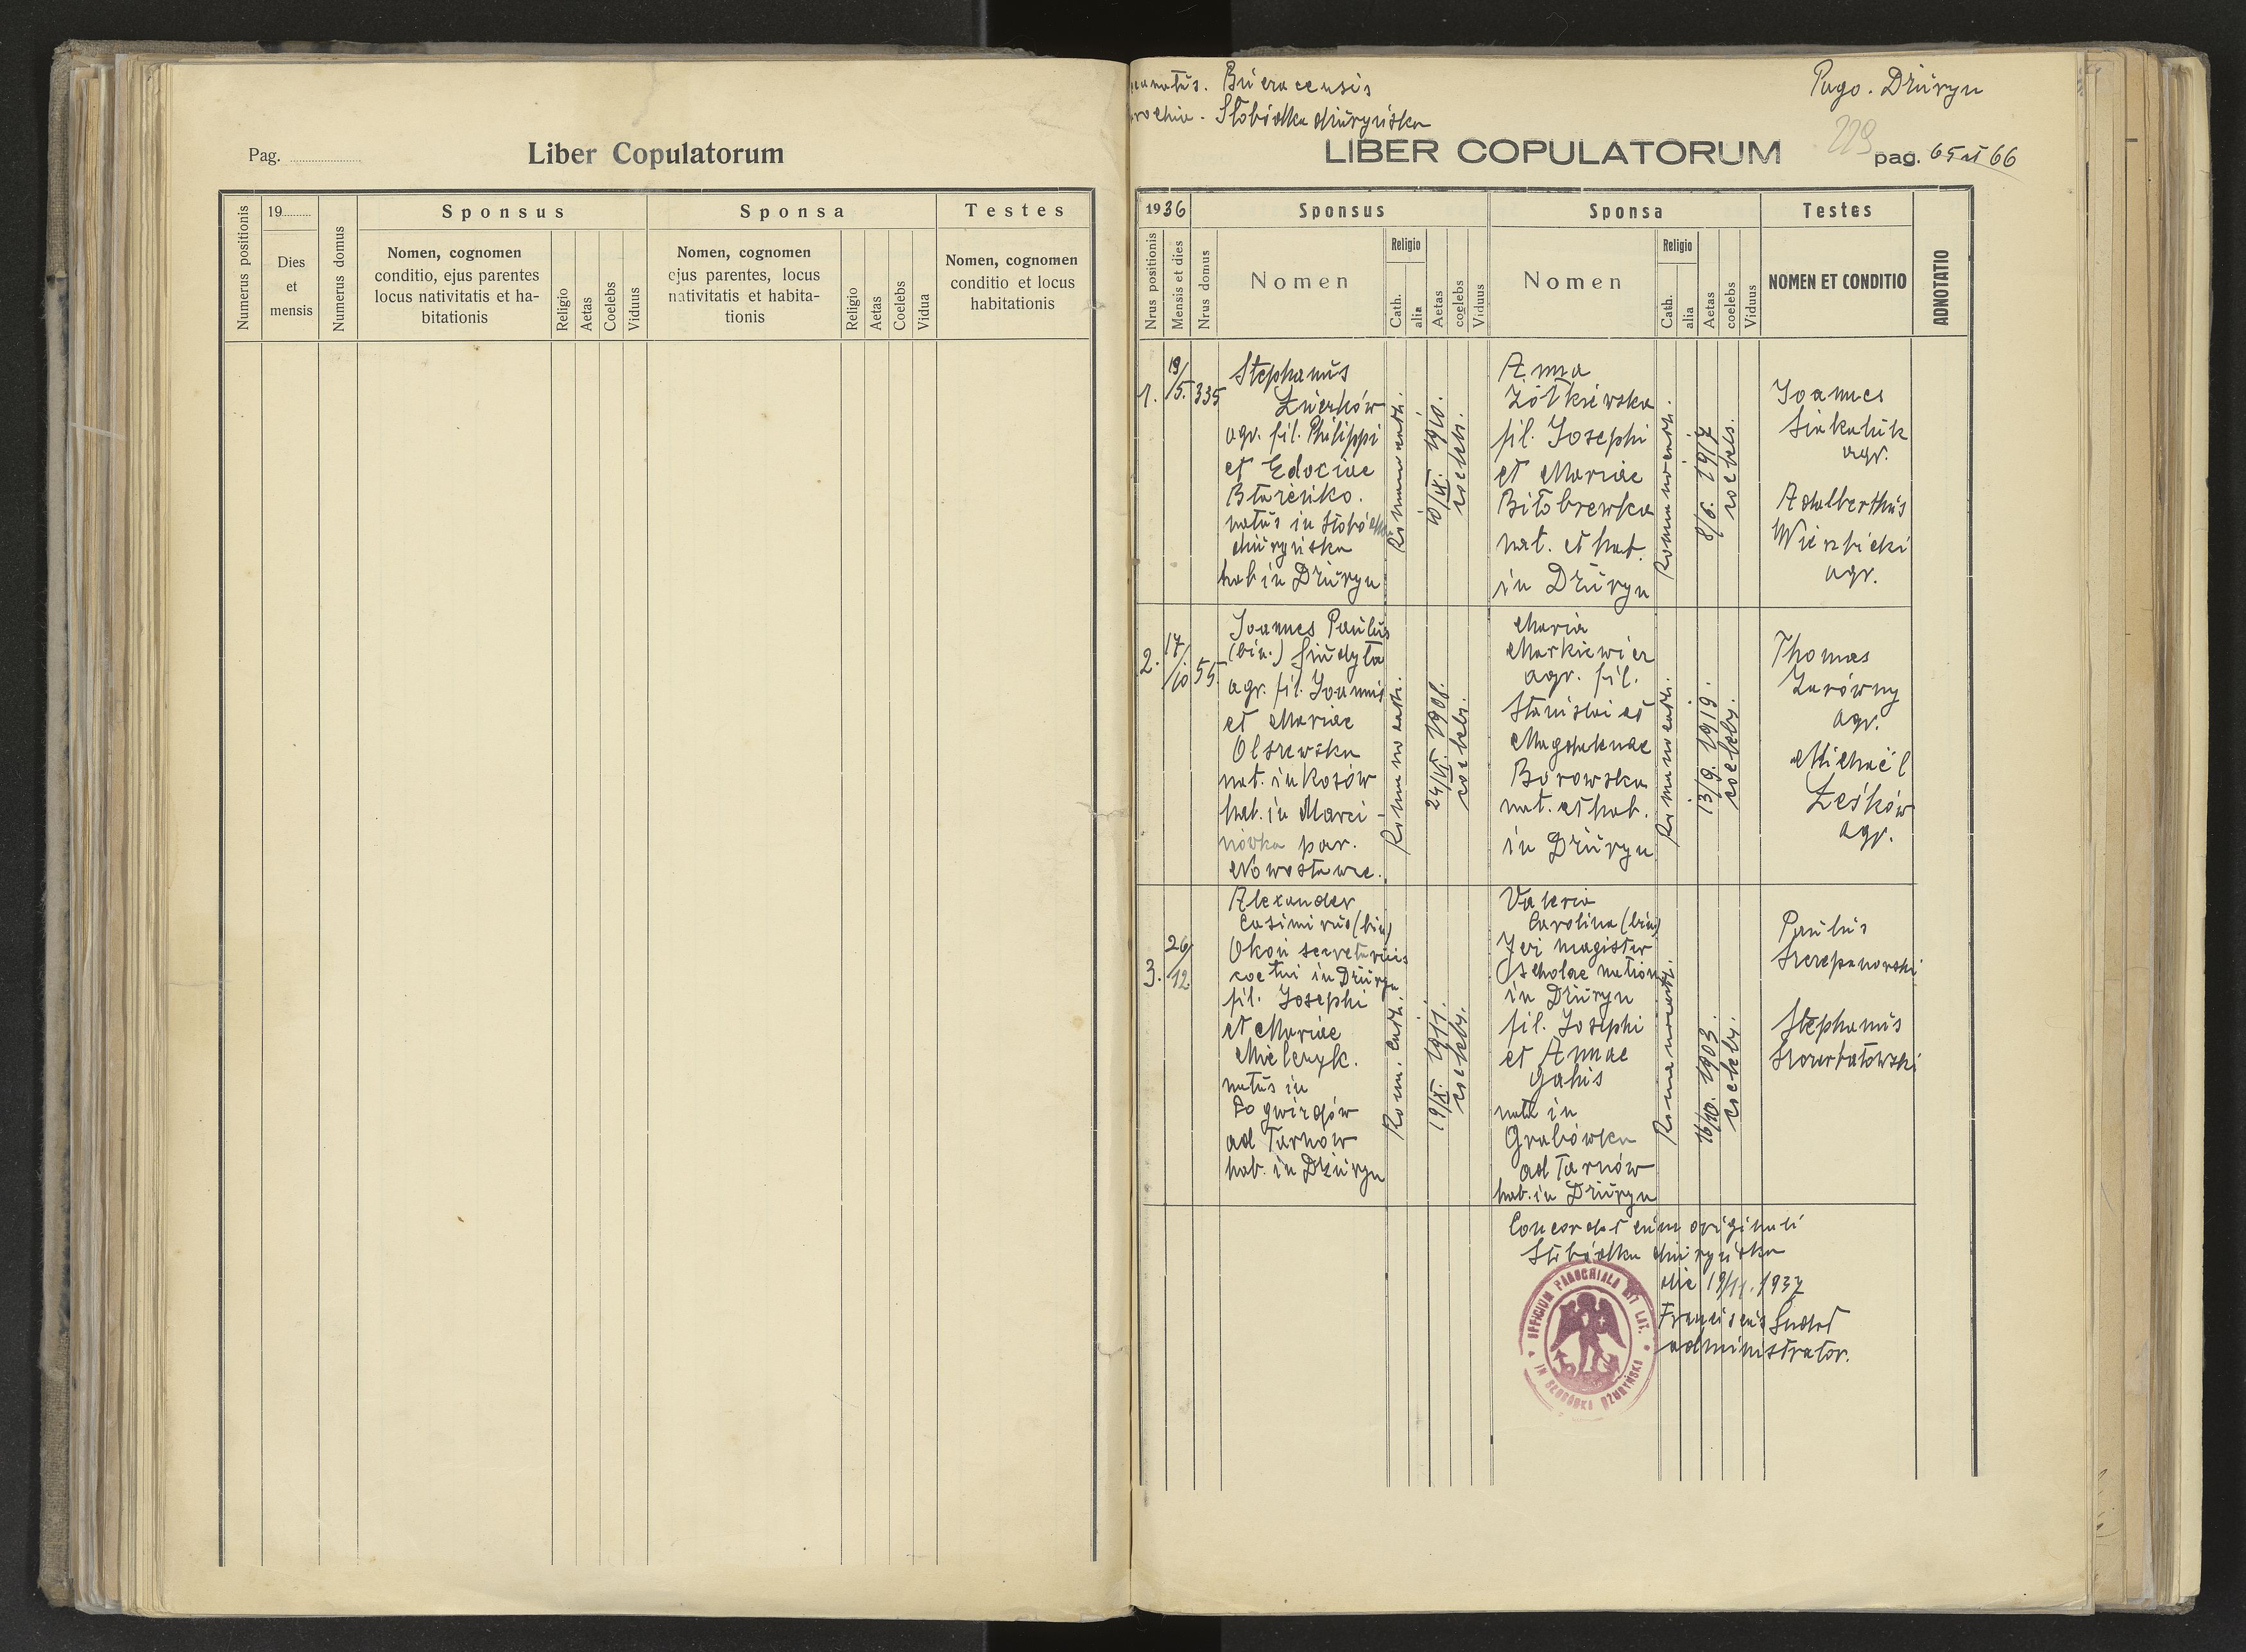 Pag.
Liber Copulatorum
Numerus positionis
19
Dies
et
mensis
Numerus domus
Sponsus
Nomen, cognomen
conditio, ejus parentes
locus nativitatis et ha-
bitationis
Religio
Aetas
Coelebs
Viduus
Sponsa
Nomen, cognomen
ejus parentes, locus
nativitatis et habita-
tionis
Religio
Aetas
Coelebs
Vidua
Testes
Nomen, cognomen
conditio et locus
habitationis
Pago. Dżuryn
Słobódka dżuryńska
LIBER COPULATORUM
229
pag. 65 et 66
1936
Nrus positionis
Mensis et dies
Nrus domus
Sponsus
Nomen
Religio
Cath.
alia
Aetas
coelebs
Viduus
Sponsa
Nomen
Religio
Cath.
alia
Aetas
coelebs
Viduus
Testes
NOMEN ET CONDITIO
ADNOTATIO
1.
19/5.
335
Stephanus
agr. fil. Philippi
et
natus in Słobódka
dżuryńska
hab in Dżuryn
Romano cath.
10/IX. 1910.
coelebs.
Anna
Żółkiewska
fil. Josephi
et Mariae
nat. et hab.
in Dżuryn
Romano cath.
8/6. 1917
coelebs.
Joannes
agr.
Adalberthus
Wierzbicki
agr.
2.
17/10
55.
Joannes Paulus
(bin.)
agr. fil. Joannis
et Mariae
Olszewska
nat. in Kosów
hab. in Marci-
nówka par.
Nowostawce.
Romano cath.
24/VI. 1908.
coelebs.
Maria
Markiewicz
agr. fil.
Stanislai et
Magdalenae
Borowska
nat. et hab.
in Dżuryn
Romano cath.
13/9. 1919.
coelebs.
Thomas
agr.
Michaël
Leśków
agr.
3.
26/12.
Alexander
Casimirus (bin)
Okoń secretarius
coetui in Dżuryn
fil. Josephi
et Mariae
Mielczyk.
natus in
Pogwizdów
ad Tarnów
hab. in Dżuryn
Rom. Cath.
19/XI. 1911.
coelebs.
Valeria
Carolina (bin)
magister
scholae nation
in Dżuryn
fil. Josephi
et Annae
nata in
Grabówka
ad Tarnów
hab. in Dżuryn
Romano cath.
16/10. 1903.
coelebs.
Paulus
Szczepanowski
Stephanus
Szczerbatowski
Concordat cum originali
Słobódka dżuryńska
die 19/11. 1937
Franciscus
administrator.
OFFICIUM PAROCHIALE RIT LAT.
IN SŁOBÓDKA DŻURYŃSKA